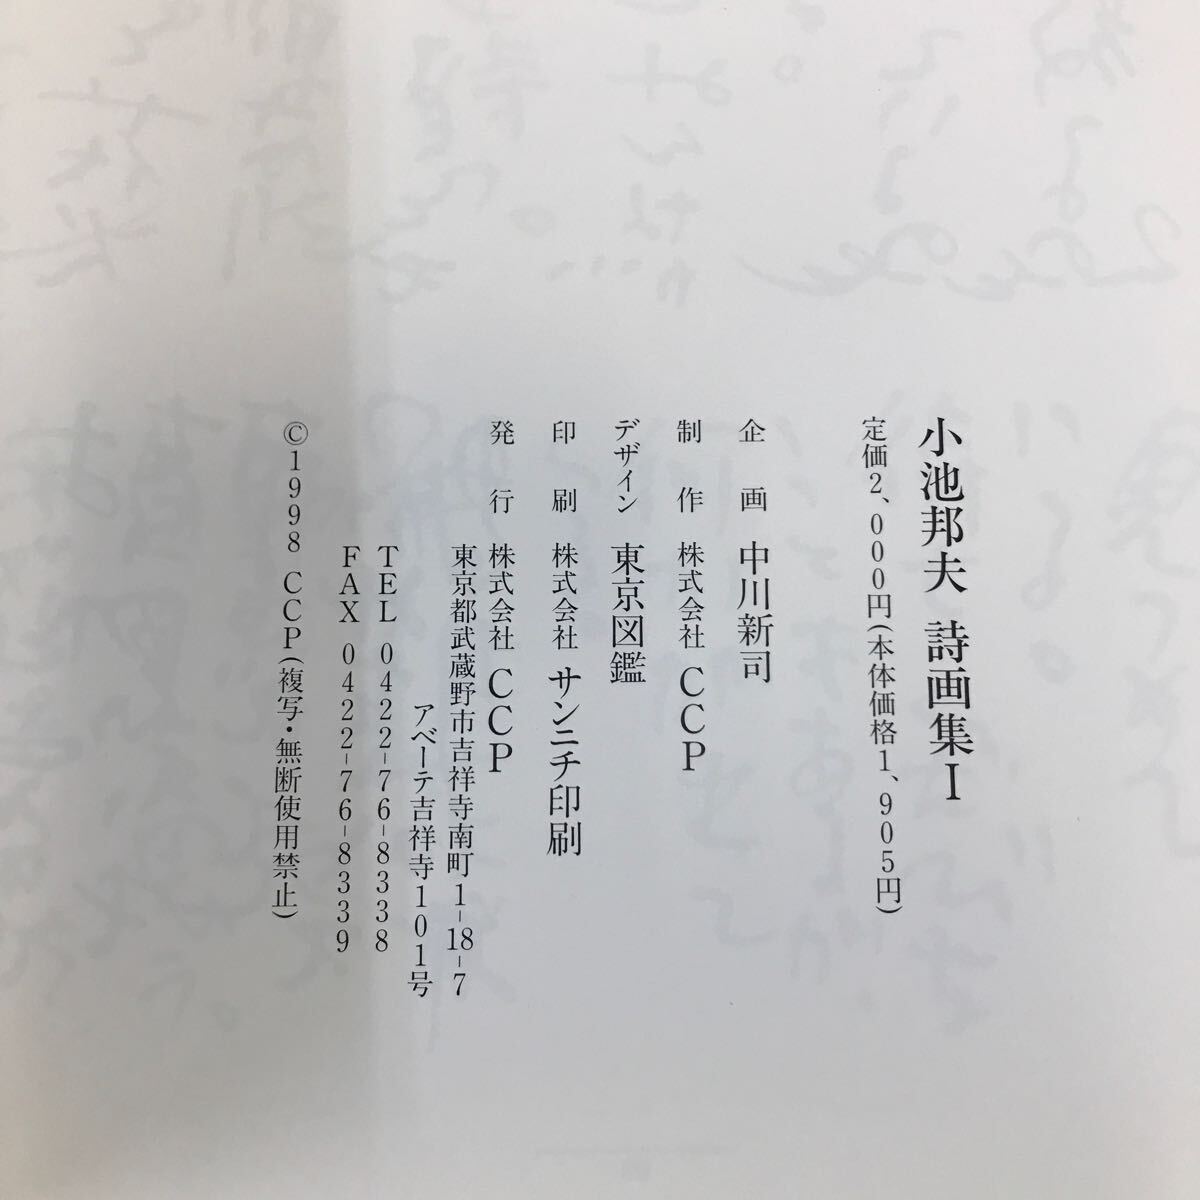 小池邦夫 詩画集Ⅰ
定価2、000円(本体価格1、905円)
企画 中川新司
制作 株式会社 CCP
デザイン 東京図鑑
印刷 株式会社 サンニチ印刷
発行 株式会社 CCP
東京都武蔵野市吉祥寺南町1-18-7
アベーテ吉祥寺101号
TEL 0422-76-8338
FAX 0422-76-8339
©1998 CCP(複写・無断使用禁止)